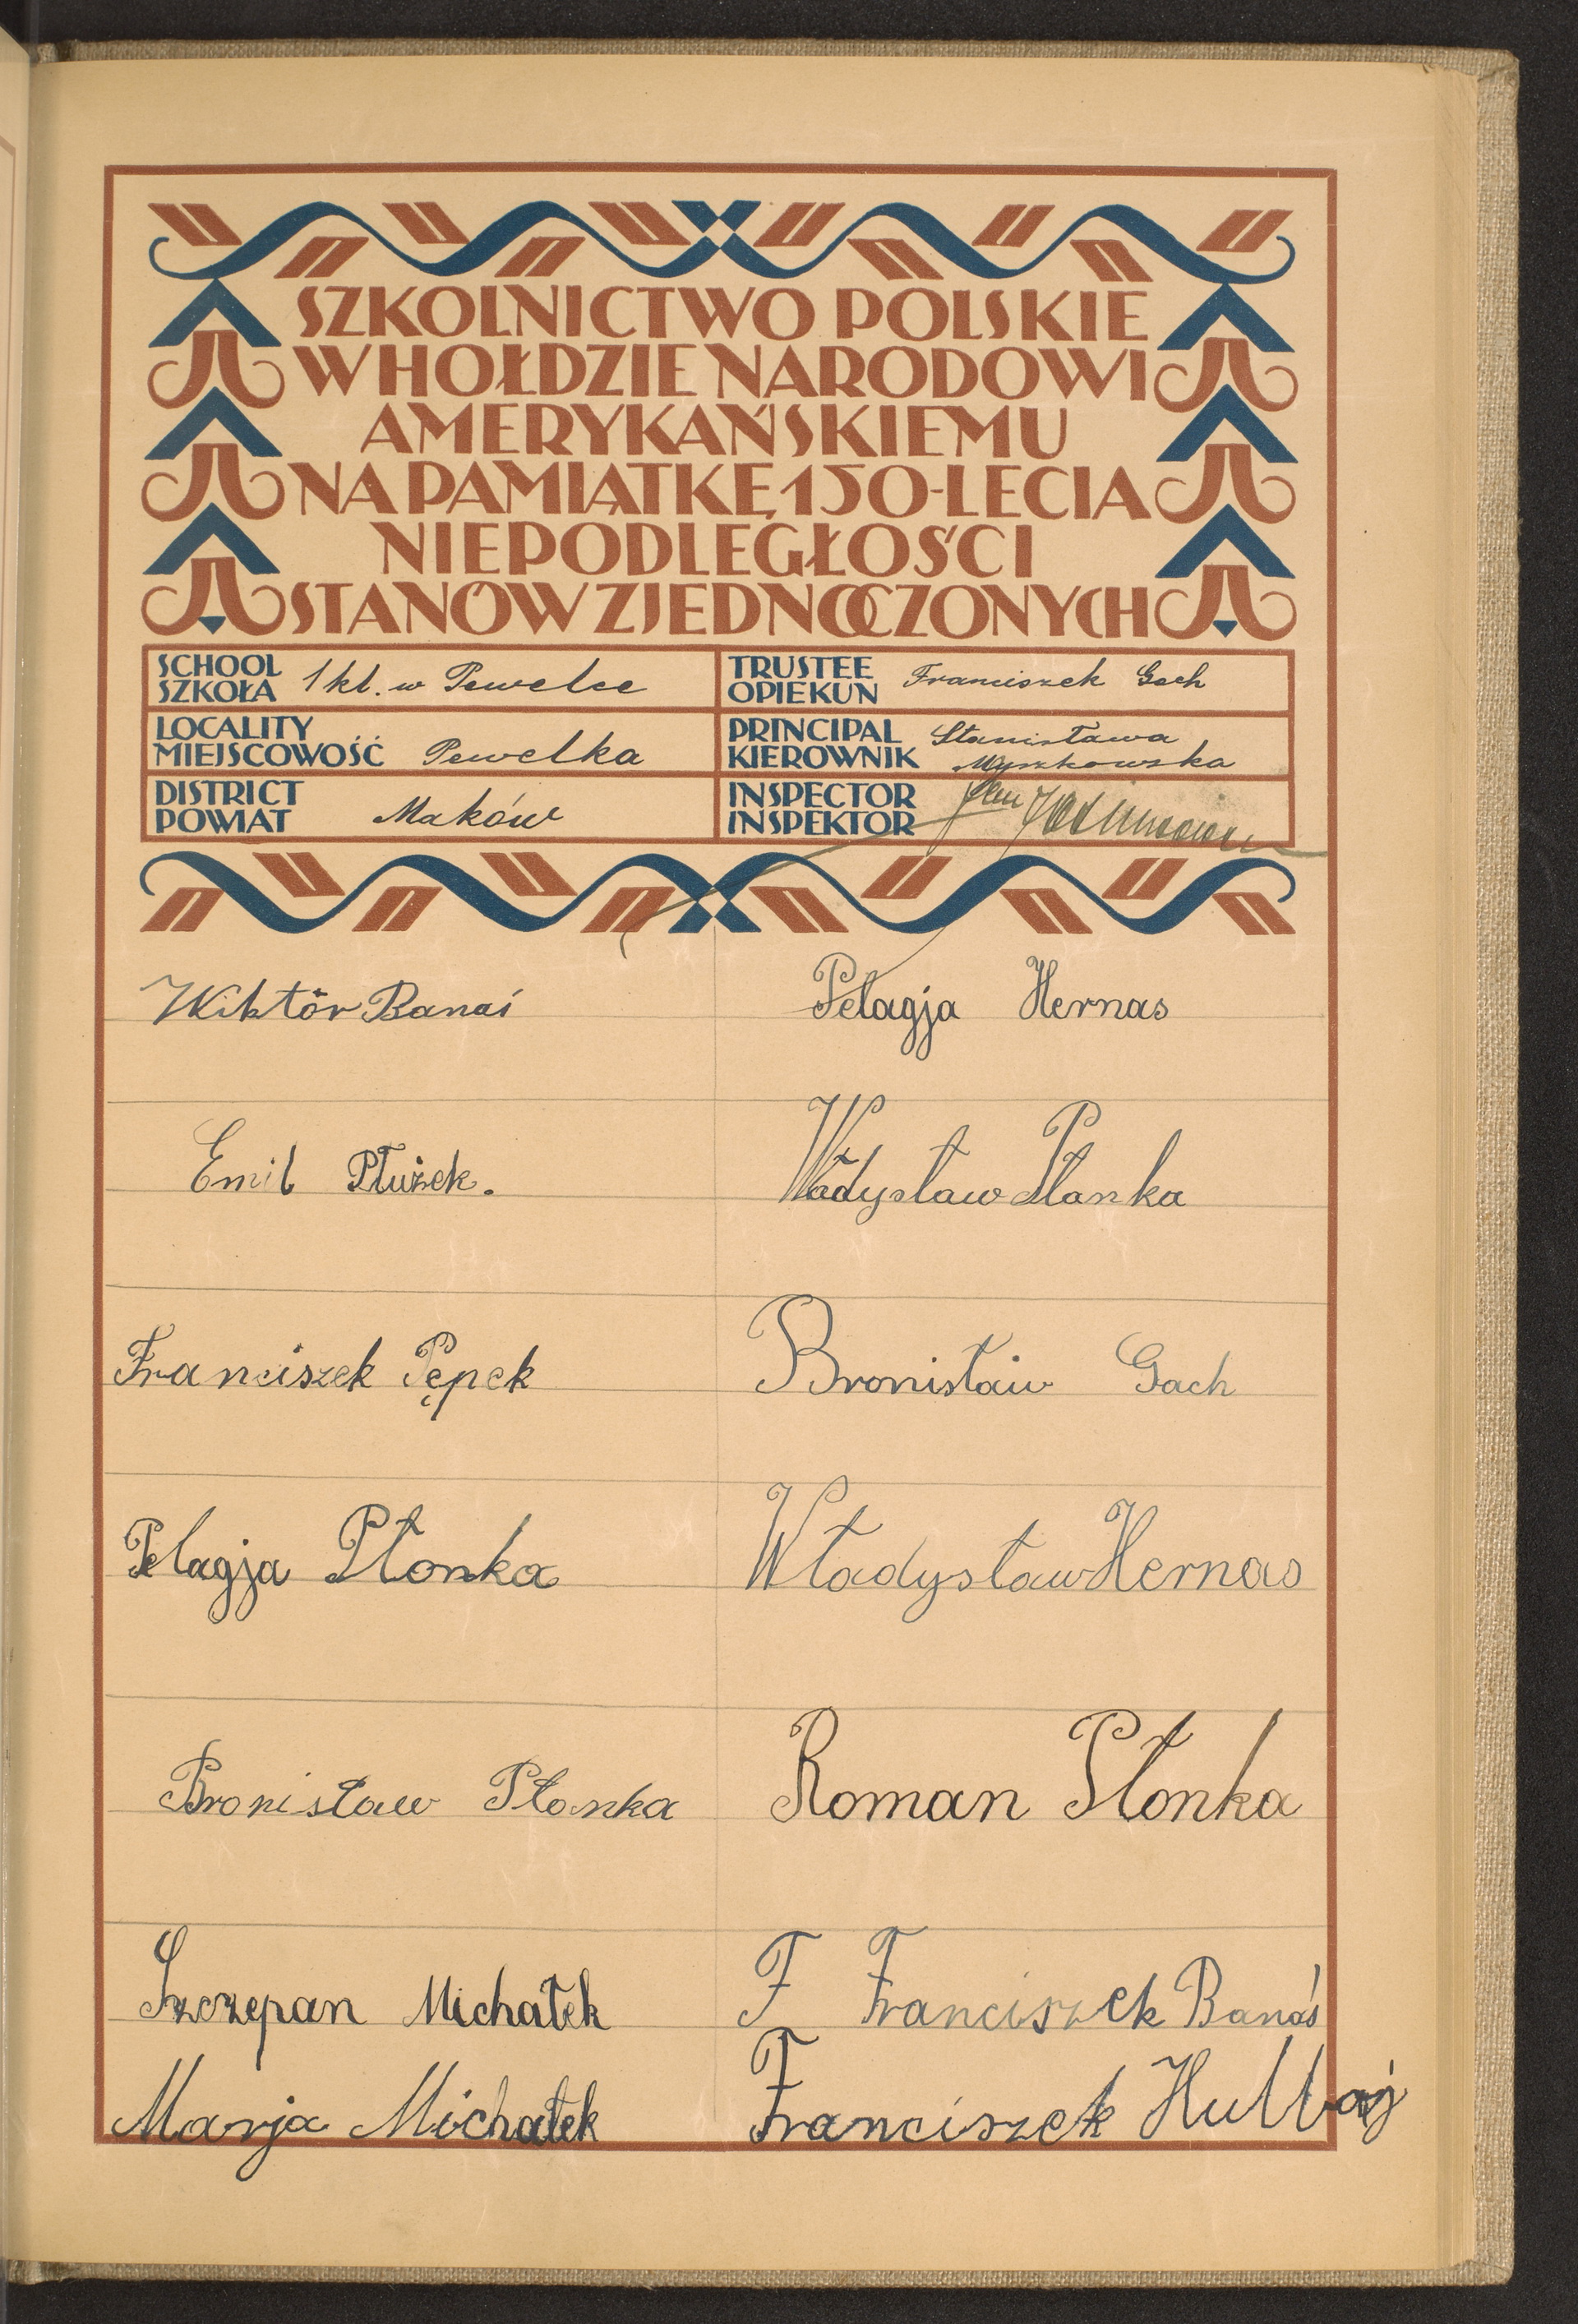 SZKOLNICTWO POLSKIE
W HOŁDZIE NARODOWI
AMERYKAŃSKIEMU
NA PAMIĄTKĘ 150-LECIA
NIEPODLEGŁOŚCI
STANÓW ZJEDNOCZONYCH
SCHOOL
SZKOŁA 1 kl. w Pewelce
TRUSTEE
OPIEKUN Franciszek Gach
LOCALITY
MIEJSCOWOŚĆ Pewelka
PRINCIPAL Stanisława
KIEROWNIK Myszkowska
DISTRICT
POWIAT Maków
INSPECTOR
INSPEKTOR
Wiktór Banaś
Pelagja Hernas
Emil Płużek.
Władysław Płonka
Franciszek Pępek
Bronisław Gach
Pelagja Płonka
Władysław Hernas
Bronisław Płonka
Roman Płonka
Szczepan Michałek
F Franciszek Banaś
Marja Michałek
Franciszek Hulbój